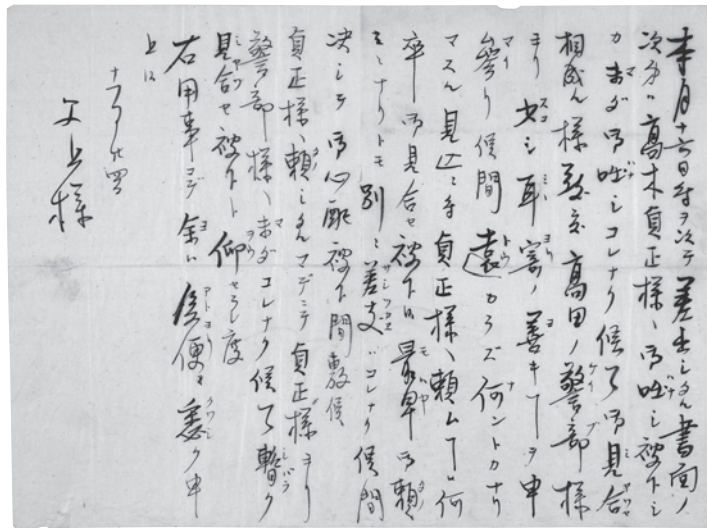 本月十六日付ヲ以テ差出シタル書面ノ
次第ハ高木貞正様ヘ御咄シ被下シ
カ未ダ御咄シコレナク候ハヾ御見合
相成ル様致度高田ノ警部様
ヨリ少シ耳寄ノ善キヿヲ申
参リ候間遠カラズ何ントカナリ
マスル見込ニ付貞正様ヘ頼ムヿハ何
卒御見合セ被下日最早御頼
ミニナリトモ別ニ差支ハコレナク候間
決シテ御心配被下間敷候
貞正様ヘ頼ミタルマデニテ貞正様ヨリ
警部様ヘ未ダコレナク候ハヾ暫ク
見合セ被下ト仰セラレ度
右用事マデ余ハ後便ニ委ク申
上候
十一月廿四日
父上様